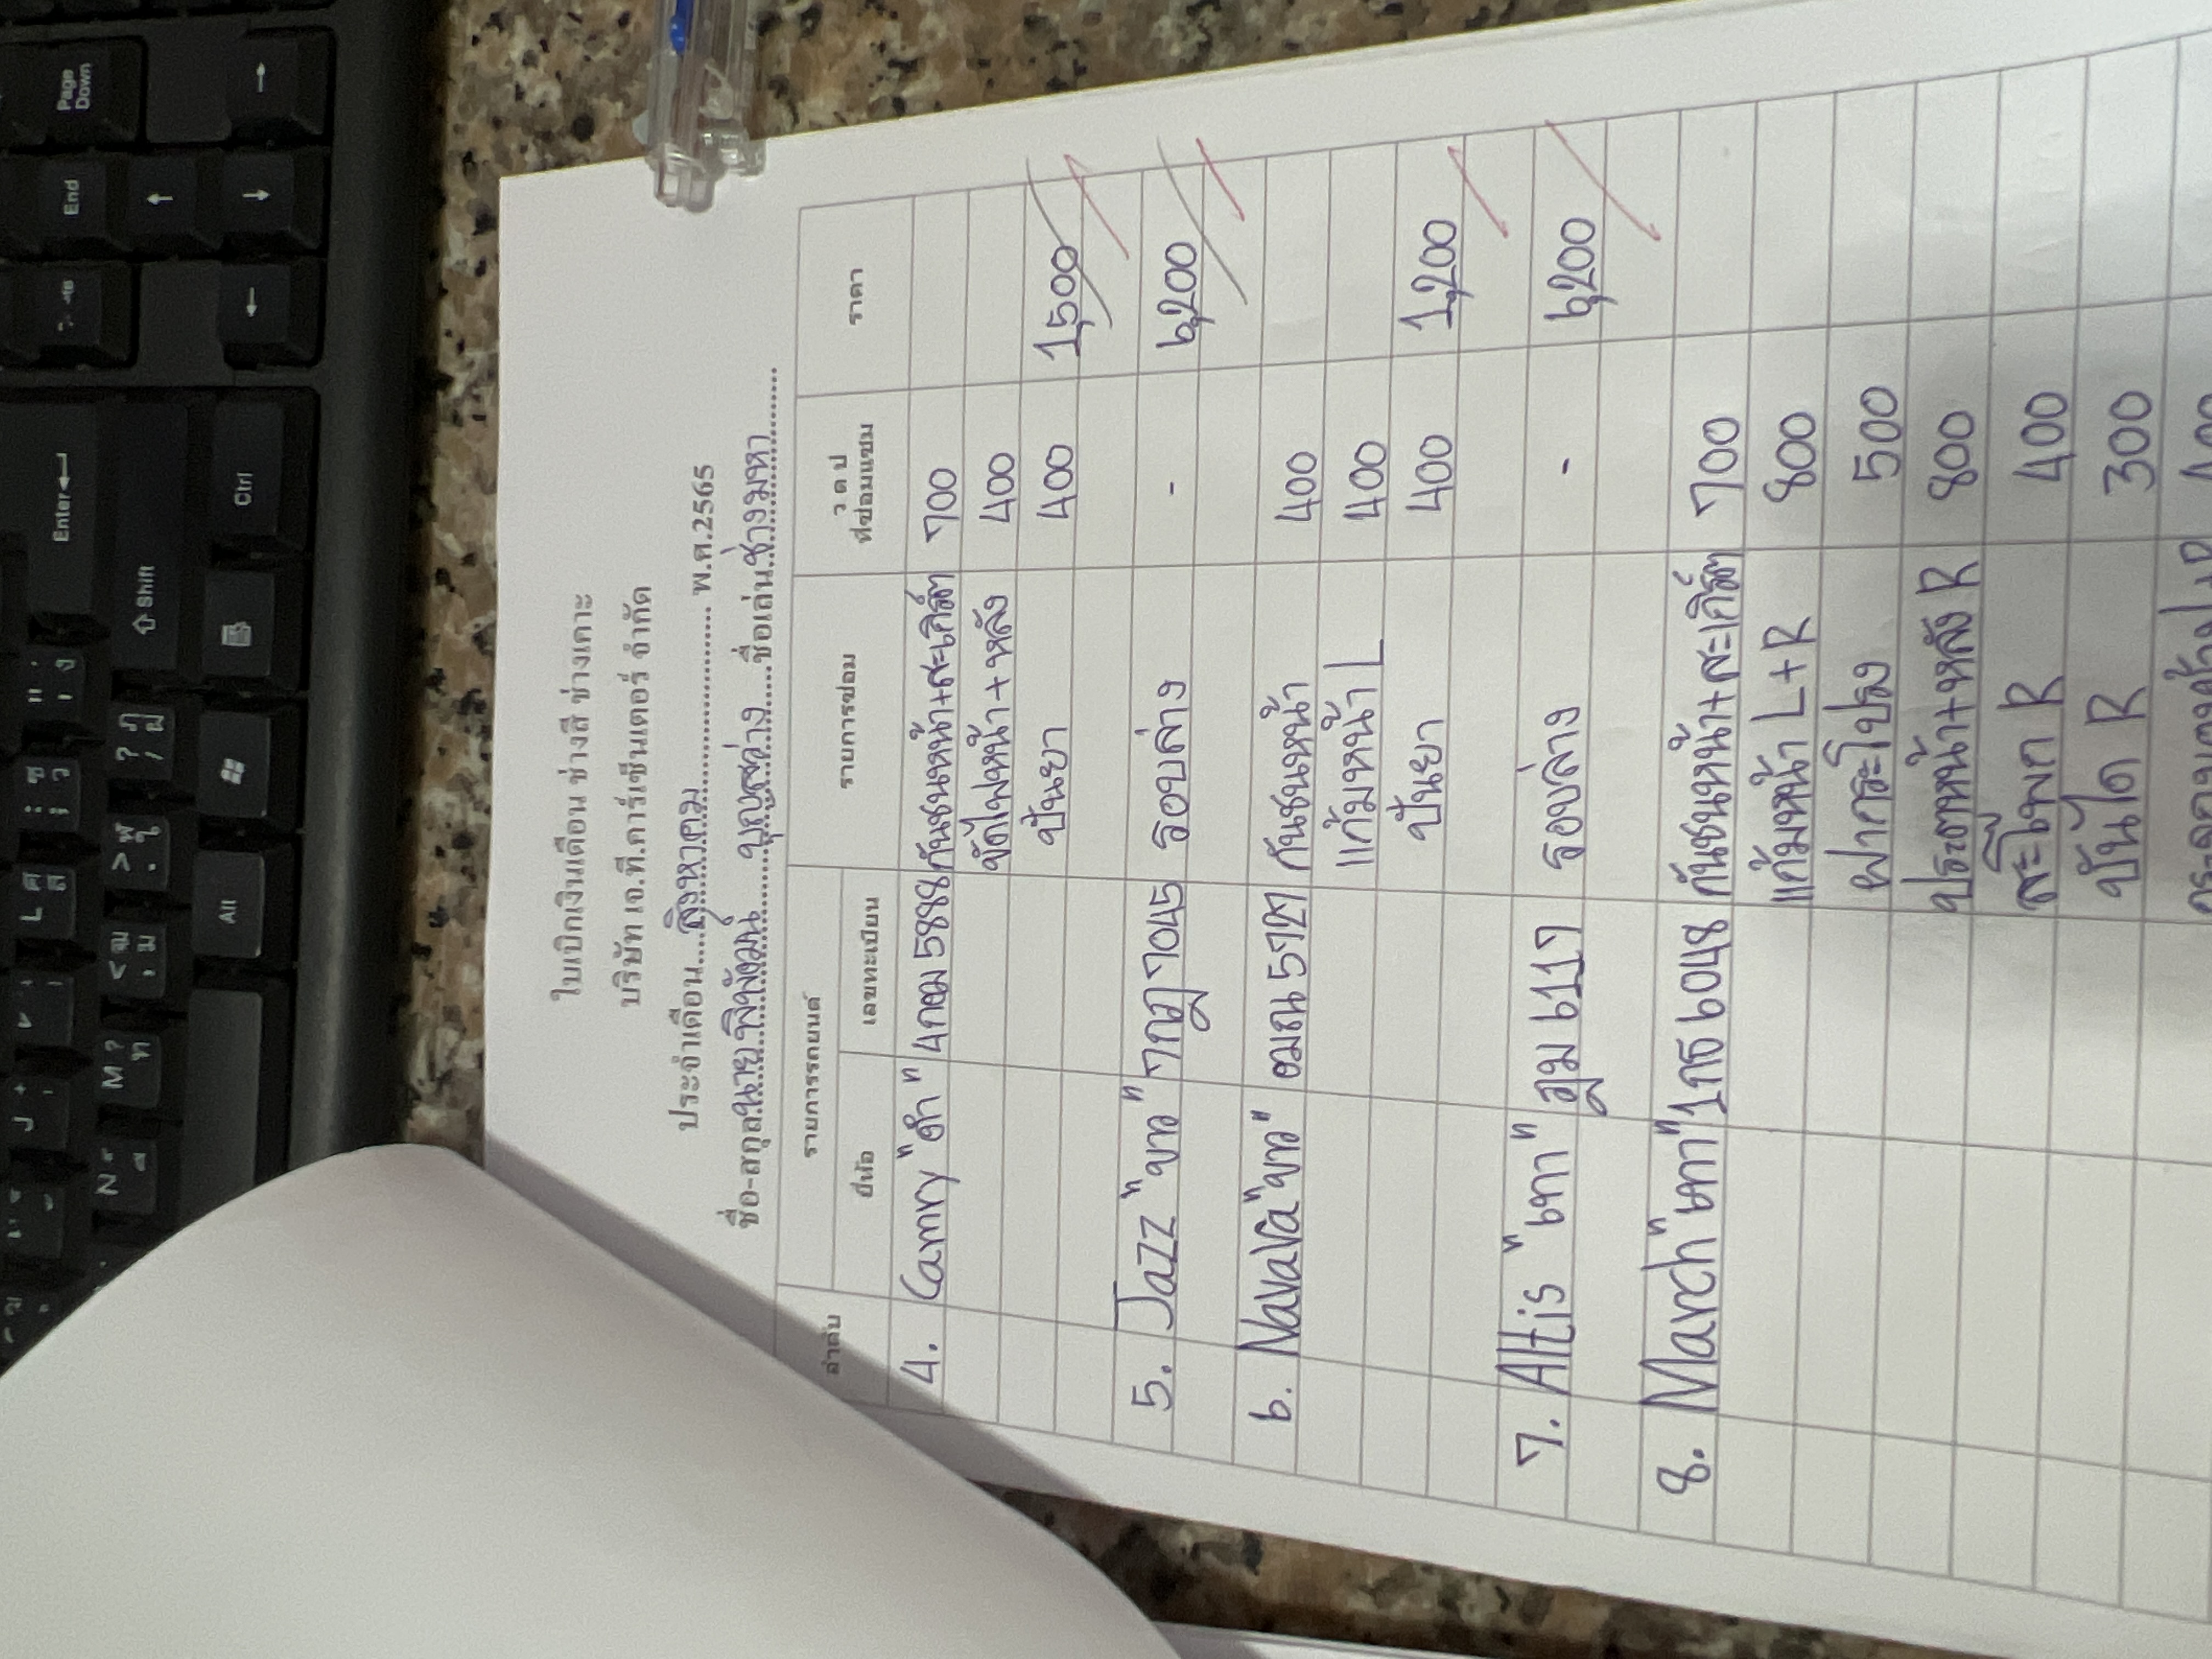 ใบเบิกเงินเดือน ช่างสี ช่างเคาะ
บริษัท เอ.ที.คาร์เซ็นเตอร์ จำกัด
ประจำเดือน....สิงหาคม.................... พ.ศ.2565
ชื่อ-สกุล.นาย บุญสว่าง....ชื่อเล่น.ช่างมหา
ลำดับ รายการรถยนต์ รายการซ่อม ว ด ป ที่ซ่อมแซม ราคา
ยี่ห้อ เลขทะเบียน
4. Camry "ดำ" 4กฒ 5888 กันชนหน้า+สะเกิ๊ต 700
ขัดไฟหน้า+หลัง 400
ปั่นยา 400 1,500
5. Jazz "ขาว" 7กฎ 7045 รอบล่าง - 6,200
6. Navara "ขาว" ฒณ 5727 กันชนหน้า 400
แก้มหน้า L 400
ปั่นยา 400 1,200
7. Altis "เทา" ฎม 6117 รอบล่าง - 6,200
8. March "เทา" 1กธ 6048 กันชนหน้า+สะเกิ๊ต 700
แก้มหน้า L+R 800
ฝากระโปรง 500
ประตูหน้า+หลัง R 800
สะโพก R 400
บันได R 300
400
Page Down
End
Enter
Shift
Ctrl
Alt